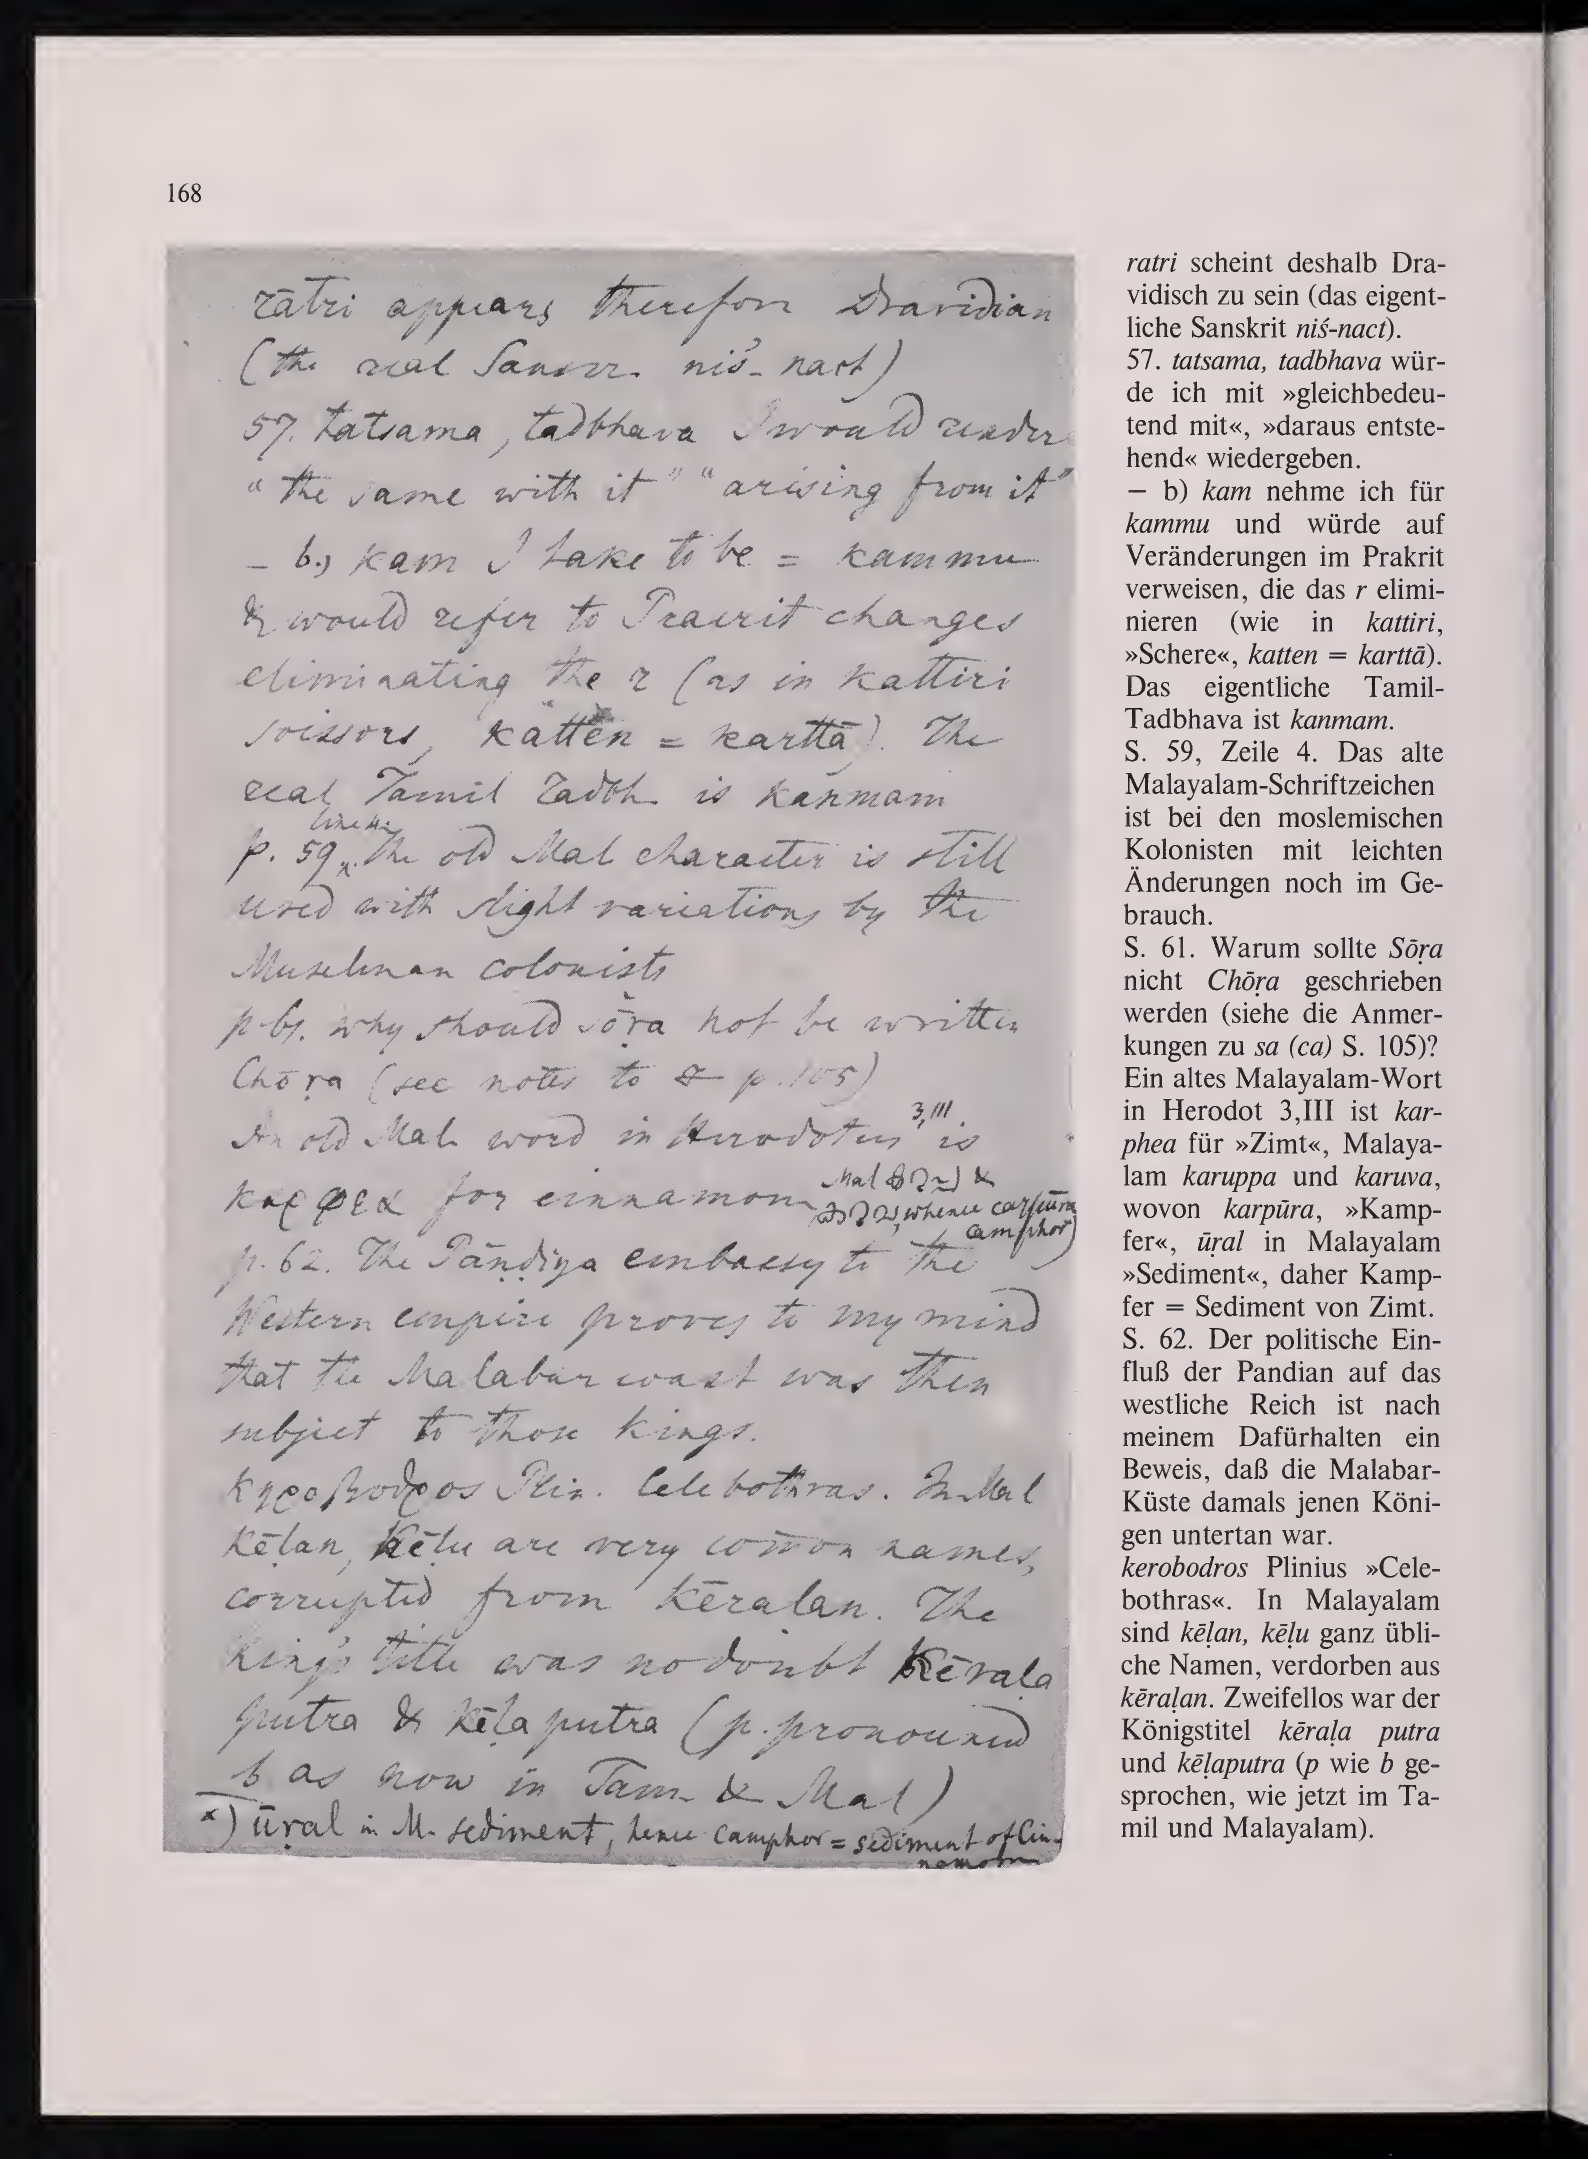 168
rātri appears therefore Dravidian
(the real Sanscr. niś- nact)
57. tatsama, tadbhava I would render
“the same with it” “arising from it”
– b.) kam I take to be = kammu
& would refer to Pracrit changes
eliminating the r (as in kattiri
scissors, kătten = karttā). The
real Tamil Tadbh. is kanmam
line 4.
p. 59. The old Mal character is still
used with slight variations by the
Muselman colonists
p 61. why should sōṛa not be written
Chōṛa (see notes to p. 105)
3,III
An old Mal. word in Herodotus is
καρφεα for cinnamom
Mal കറുപ്പ &
കറുവ, whence carpūra
camphor)
p. 62. The Pāṇḍiya embassy to the
Western empire proves to my mind
that the Malabar coast was then
subject to those kings.
κηροβοδρος Plin. Celebothras. In Mal
kēḷan, kēḷu are very com̄on names,
corrupted from kēraḷan. The
king's title was no doubt Kērala
putra & kēḷa putra (p. pronounced
b as now in Tam. & Mal)
x) ūṛal in M. sediment, hence camphor = sediment of Cin-
namom
ratri scheint deshalb Dra-
vidisch zu sein (das eigent-
liche Sanskrit niś-nact).
57. tatsama, tadbhava wür-
de ich mit »gleichbedeu-
tend mit«, »daraus entste-
hend« wiedergeben.
— b) kam nehme ich für
kammu und würde auf
Veränderungen im Prakrit
verweisen, die das r elimi-
nieren (wie in kattiri,
»Schere«, katten = karttā).
Das eigentliche Tamil-
Tadbhava ist kanmam.
S. 59, Zeile 4. Das alte
Malayalam-Schriftzeichen
ist bei den moslemischen
Kolonisten mit leichten
Änderungen noch im Ge-
brauch.
S. 61. Warum sollte Sōṛa
nicht Chōṛa geschrieben
werden (siehe die Anmer-
kungen zu sa (ca) S. 105)?
Ein altes Malayalam-Wort
in Herodot 3,III ist kar-
phea für »Zimt«, Malaya-
lam karuppa und karuva,
wovon karpūra, »Kamp-
fer«, ūṛal in Malayalam
»Sediment«, daher Kamp-
fer = Sediment von Zimt.
S. 62. Der politische Ein-
fluß der Pandian auf das
westliche Reich ist nach
meinem Dafürhalten ein
Beweis, daß die Malabar-
Küste damals jenen Köni-
gen untertan war.
kerobodros Plinius »Cele-
bothras«. In Malayalam
sind kēḷan, kēḷu ganz übli-
che Namen, verdorben aus
kēraḷan. Zweifellos war der
Königstitel kēraḷa putra
und kēḷaputra (p wie b ge-
sprochen, wie jetzt im Ta-
mil und Malayalam).